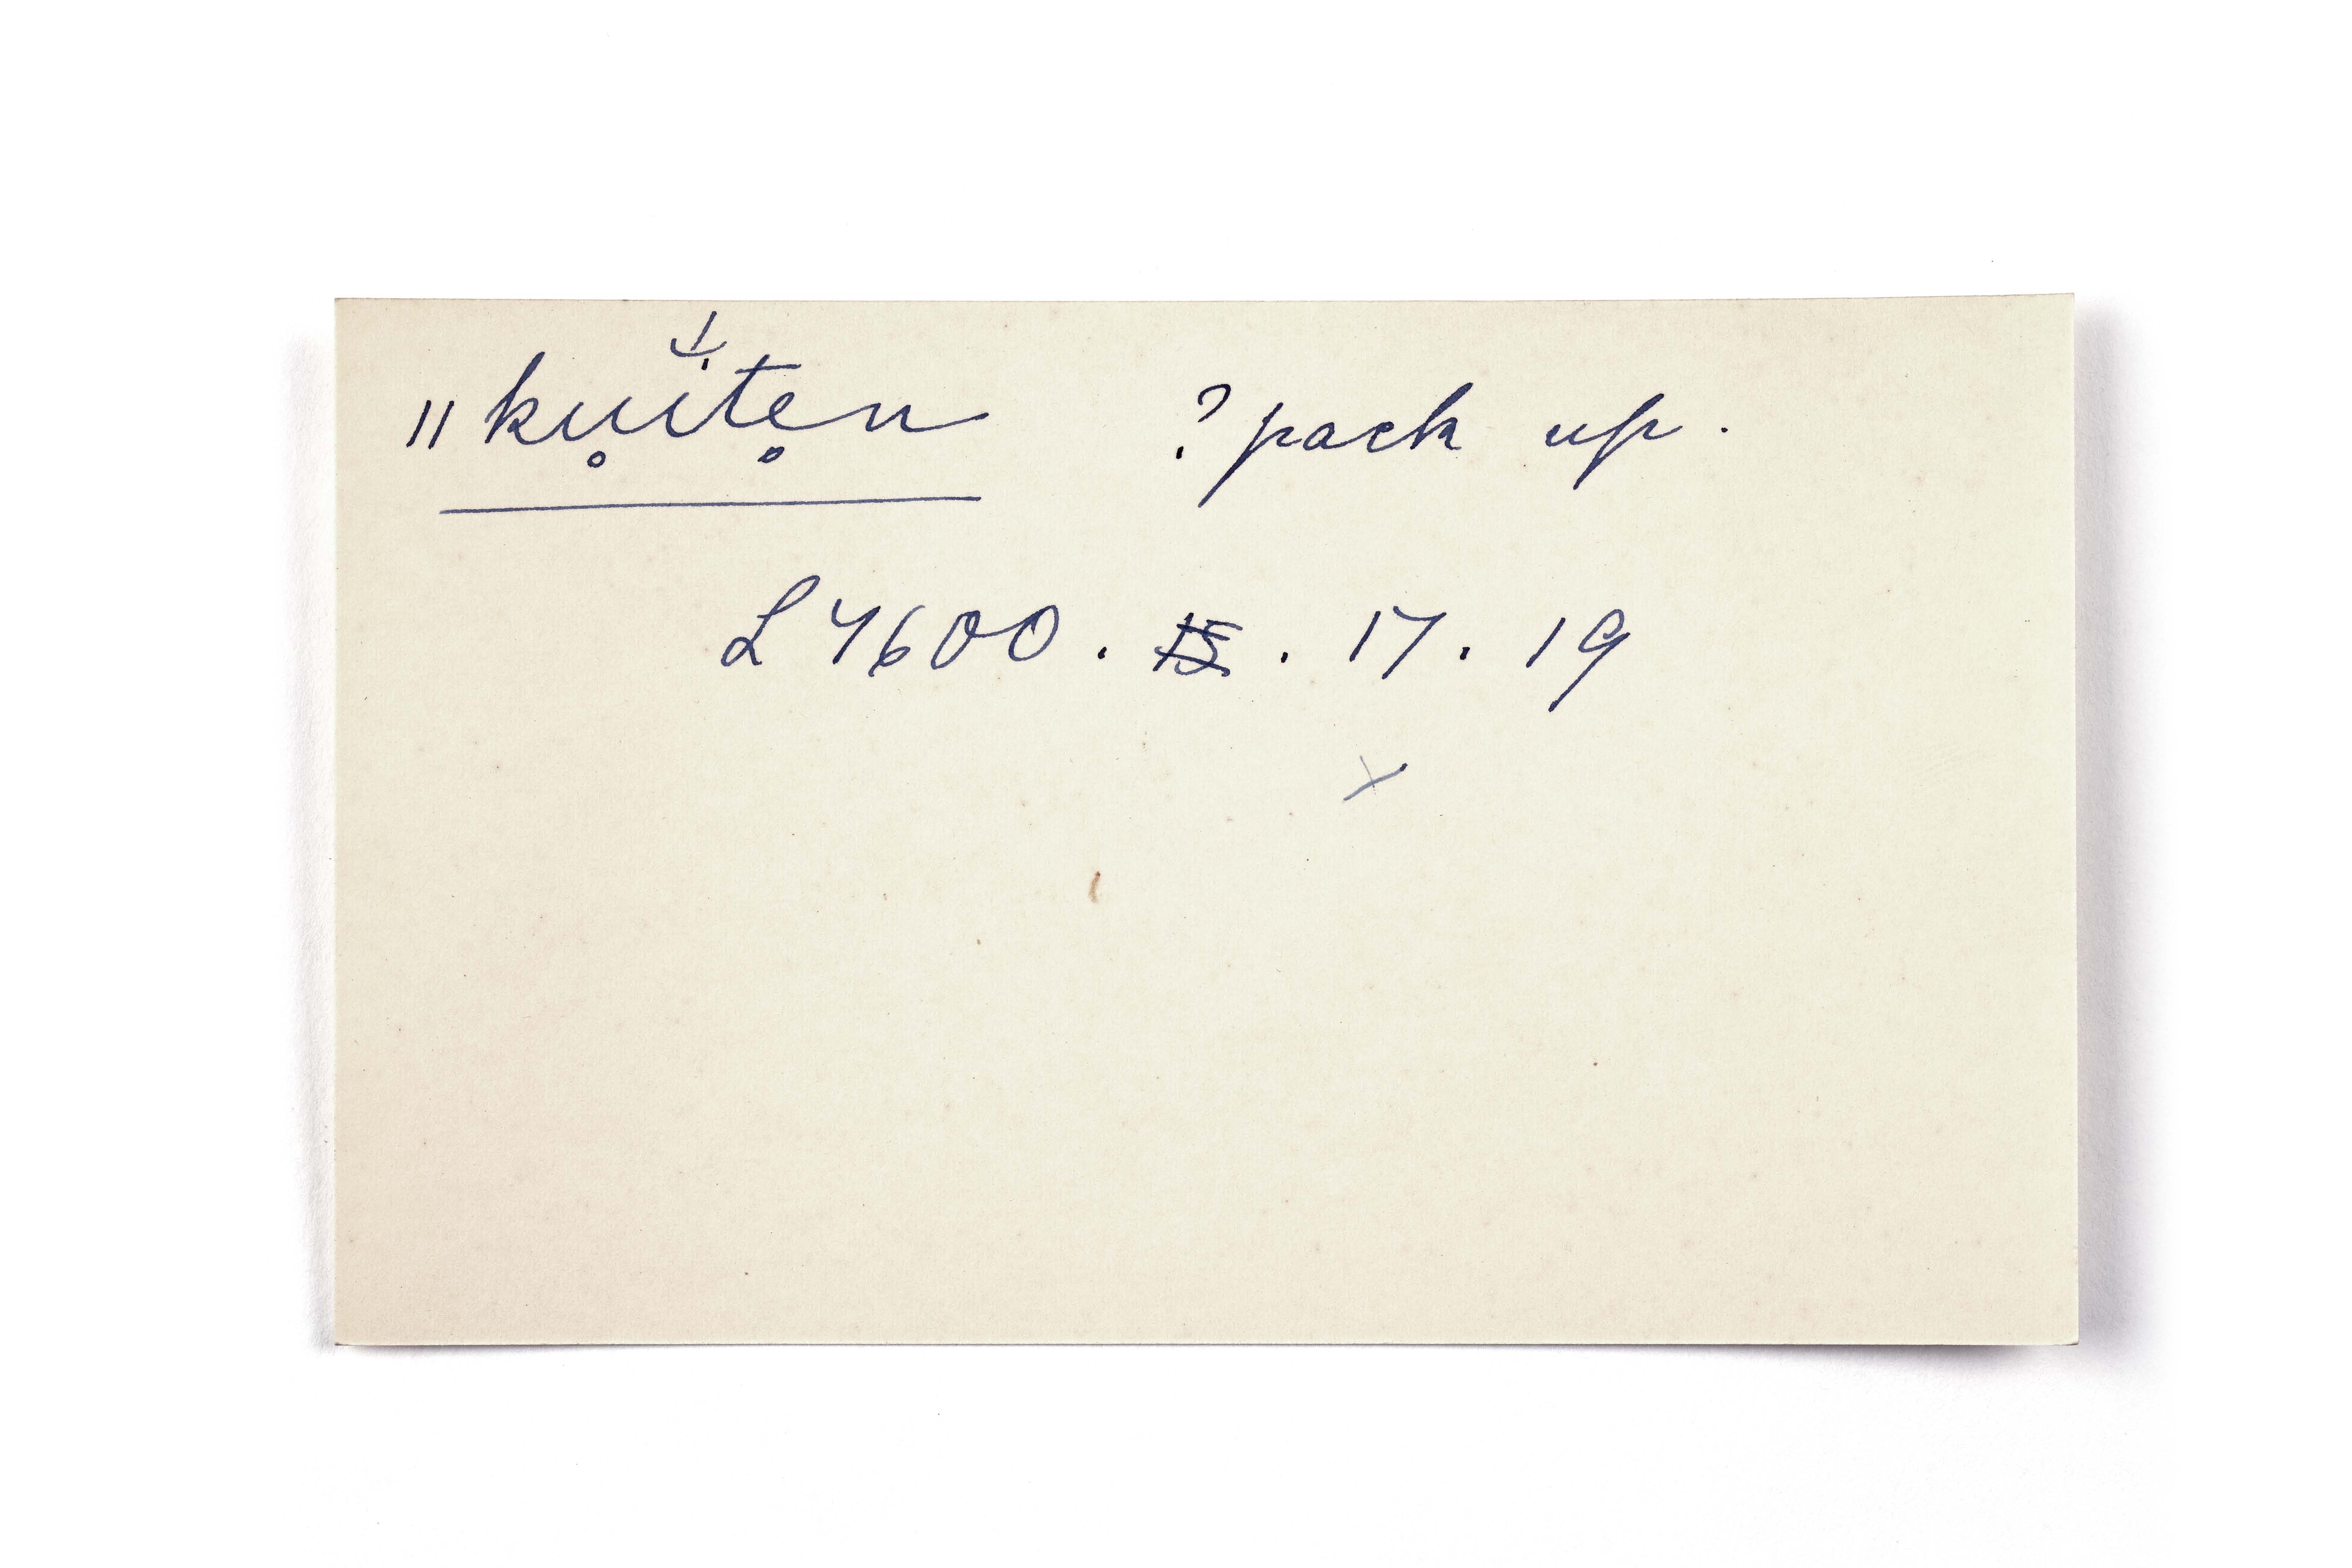 "kụ̊ı̆́te̥n ? pack up.
L 7600 . 15 . 17 . 19
x